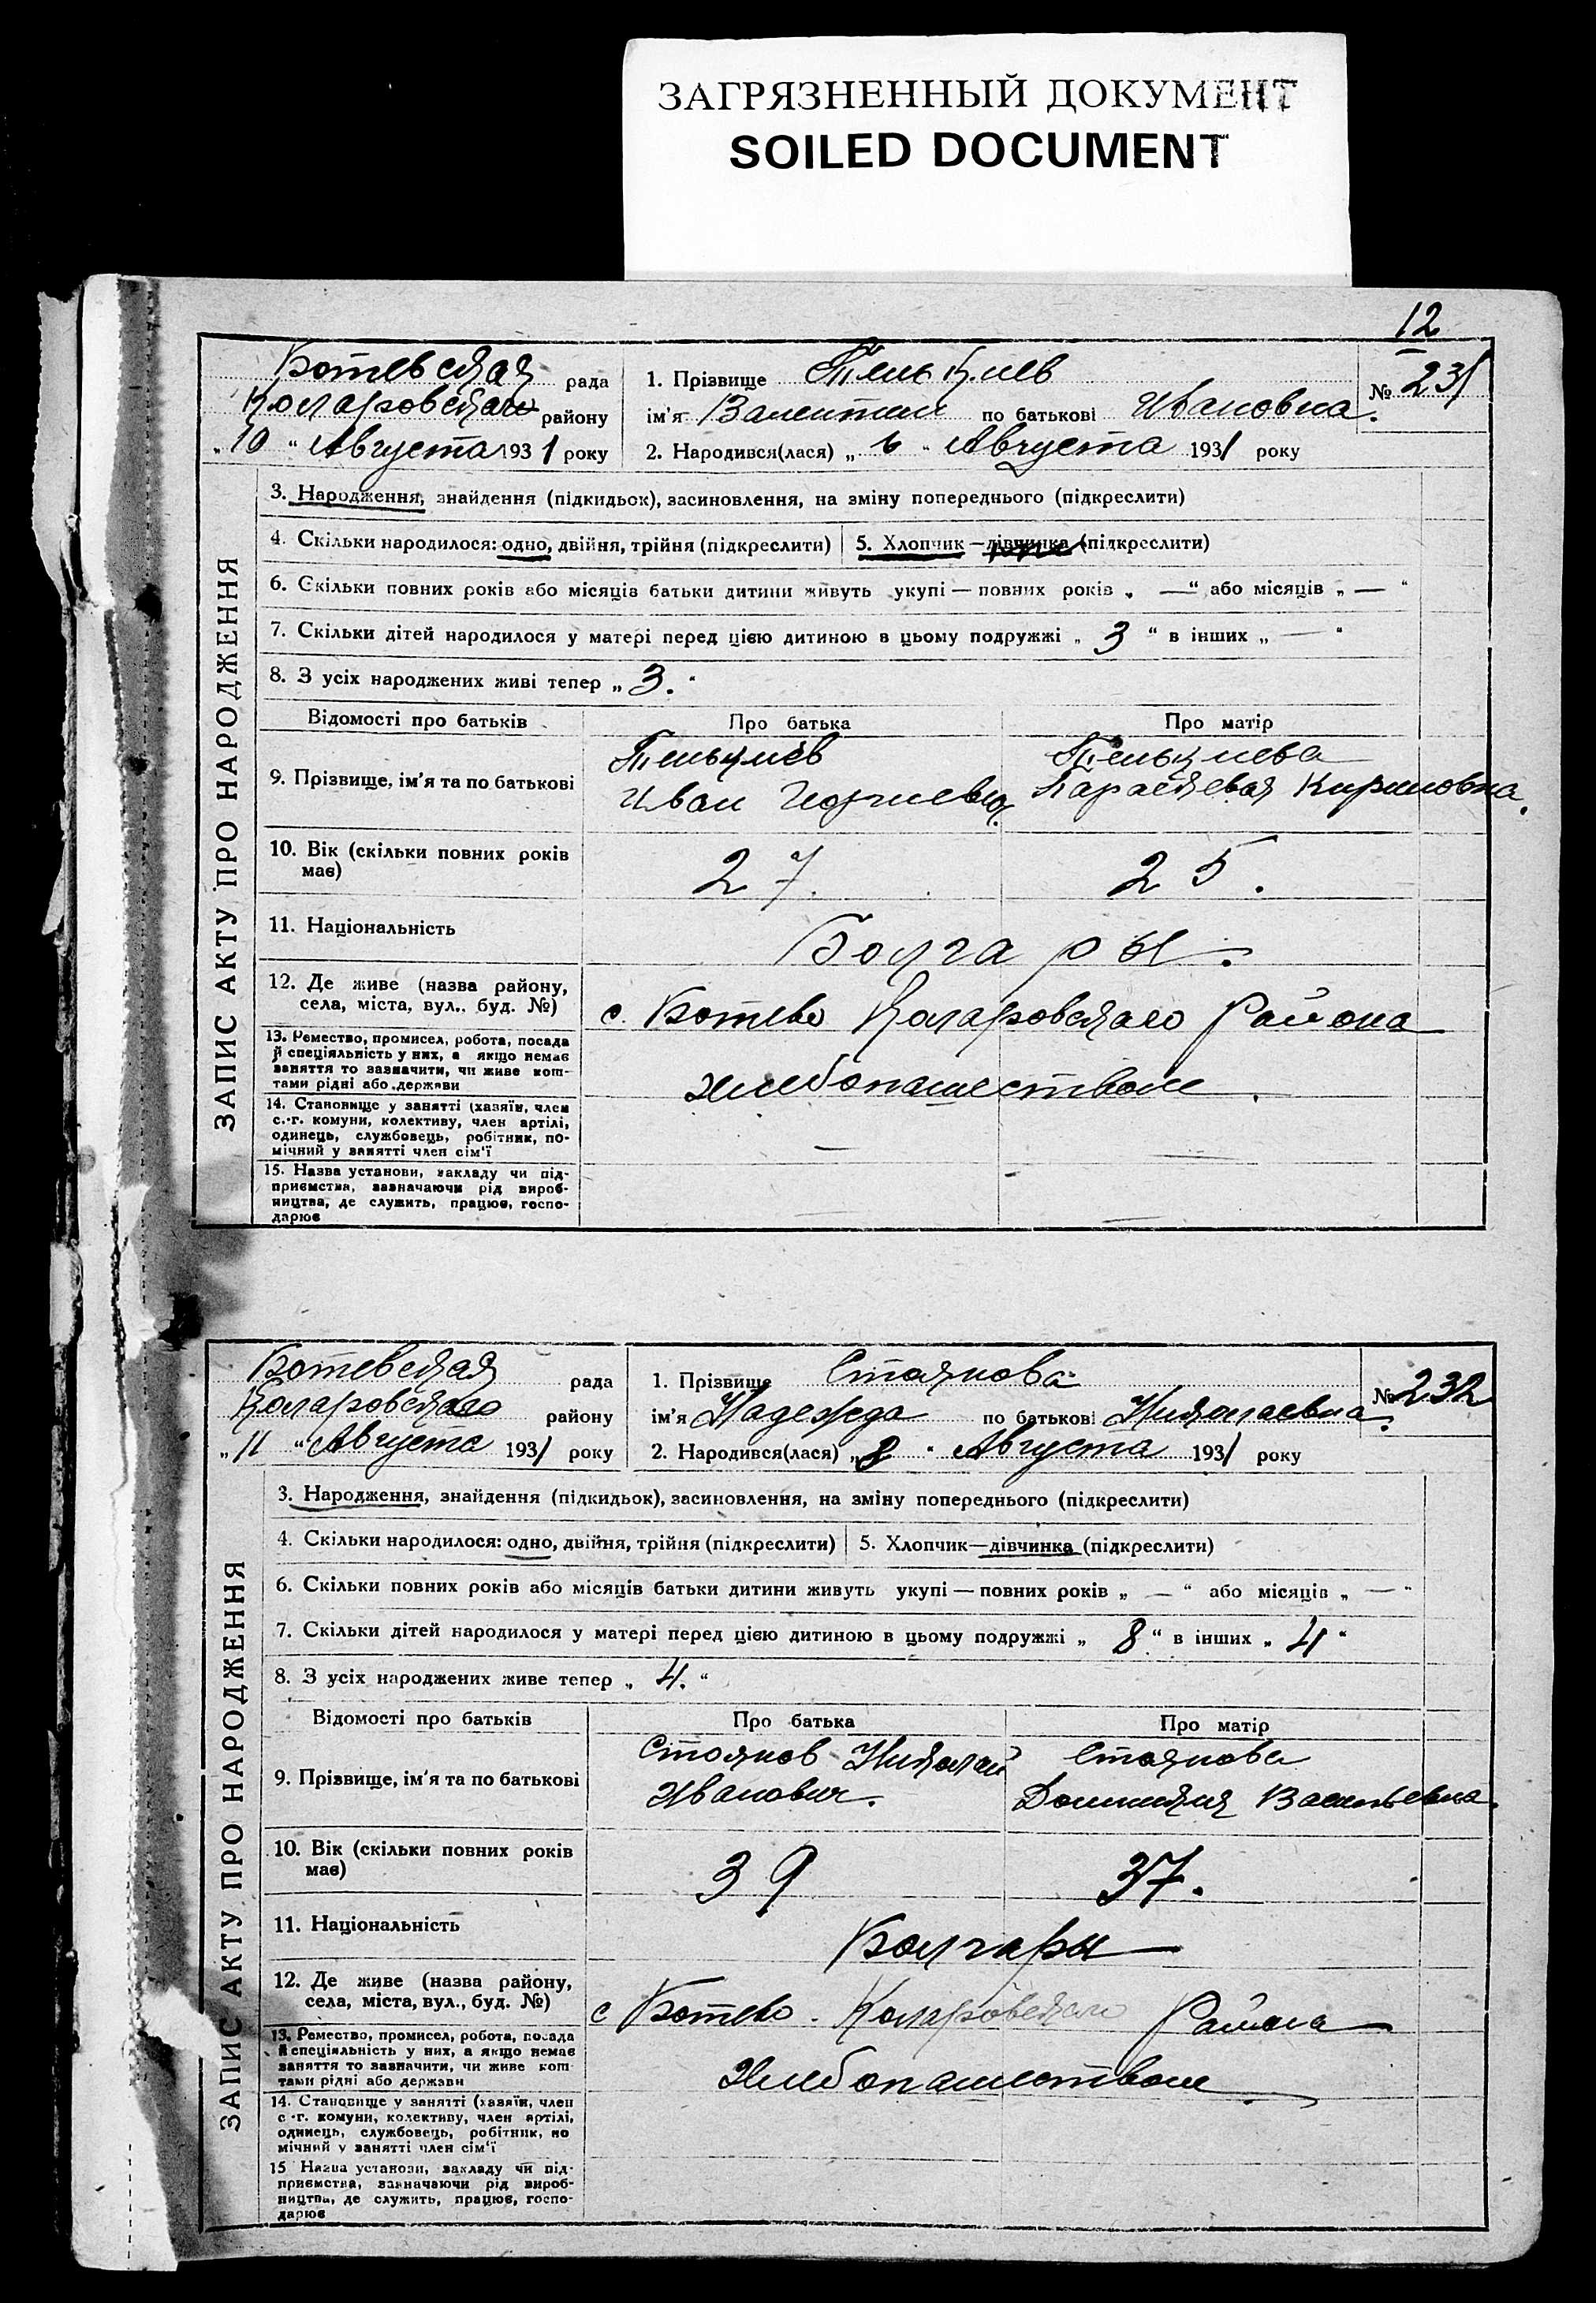 ЗАГРЯЗНЕННЫЙ ДОКУМЕНТ
SOILED DOCUMENT
12
ЗАПИС АКТУ ПРО НАРОДЖЕННЯ
Ботевская рада
Коларовскаго району
„10“ Августа 1931 року
1. Прізвище
№ 231
ім'я Валентин по батькові Ивановна.
2. Народився(лася) „6“ Августа 1931 року
3. Народження, знайдення (підкидьок), засиновлення, на зміну попереднього (підкреслити)
4. Скільки народилося: одно, двійня, трійня (підкреслити) 5. Хлопчик—дівчинка (підкреслити)
6. Скільки повних років або місяців батьки дитини живуть укупі — повних років „ — “ або місяців „ — “
7. Скільки дітей народилося у матері перед цією дитиною в цьому подружжі „ 3 “ в інших „ — “
8. З усіх народжених живі тепер „ 3. “
Відомості про батьків Про батька Про матір
9. Прізвище, ім'я та по батькові
Иван Георгиевич
10. Вік (скільки повних років має) 27. 25.
11. Національність Болгары.
12. Де живе (назва району, села, міста, вул., буд. №)
с. Ботево Коларовскаго Района
13. Ремество, промисел, робота, посада
й спеціяльність у них, а якщо немає
заняття то зазначити, чи живе кош-
тами рідні або держави
хлебопашеством.
14. Становище у занятті (хазяїн, член
с.-г. комуни, колективу, член артілі,
одинець, службовець, робітник, по-
мічний у занятті член сім'ї
15. Назва установи, закладу чи під-
приємства, зазначаючи рід вироб-
ництва, де служить, працює, госпо-
дарює
ЗАПИС АКТУ ПРО НАРОДЖЕННЯ
Ботевская рада
Коларовскаго району
„11“ Августа 1931 року
1. Прізвище Стоянова
№ 232
ім'я Надежда по батькові Николаевна.
2. Народився(лася) „8“ Августа 1931 року
3. Народження, знайдення (підкидьок), засиновлення, на зміну попереднього (підкреслити)
4. Скільки народилося: одно, двійня, трійня (підкреслити) 5. Хлопчик—дівчинка (підкреслити)
6. Скільки повних років або місяців батьки дитини живуть укупі — повних років „ — “ або місяців „ — “
7. Скільки дітей народилося у матері перед цією дитиною в цьому подружжі „ 8 “ в інших „ 4 “
8. З усіх народжених живе тепер „ 4. “
Відомості про батьків Про батька Про матір
9. Прізвище, ім'я та по батькові
Стоянов Николай Стоянова
Иванович. Васильевна.
10. Вік (скільки повних років має) 39 37.
11. Національність Болгары
12. Де живе (назва району, села, міста, вул., буд. №)
с Ботево. Коларовскаго Района
13. Ремество, промисел, робота, посада
й спеціяльність у них, а якщо немає
заняття то зазначити, чи живе кош-
тами рідні або держави
Хлебопашеством
14. Становище у занятті (хазяїн, член
с.-г. комуни, колективу, член артілі,
одинець, службовець, робітник, по-
мічний у занятті член сім'ї
15 Назва установи, закладу чи під-
приємства, зазначаючи рід вироб-
ництва, де служить, працює, госпо-
дарює